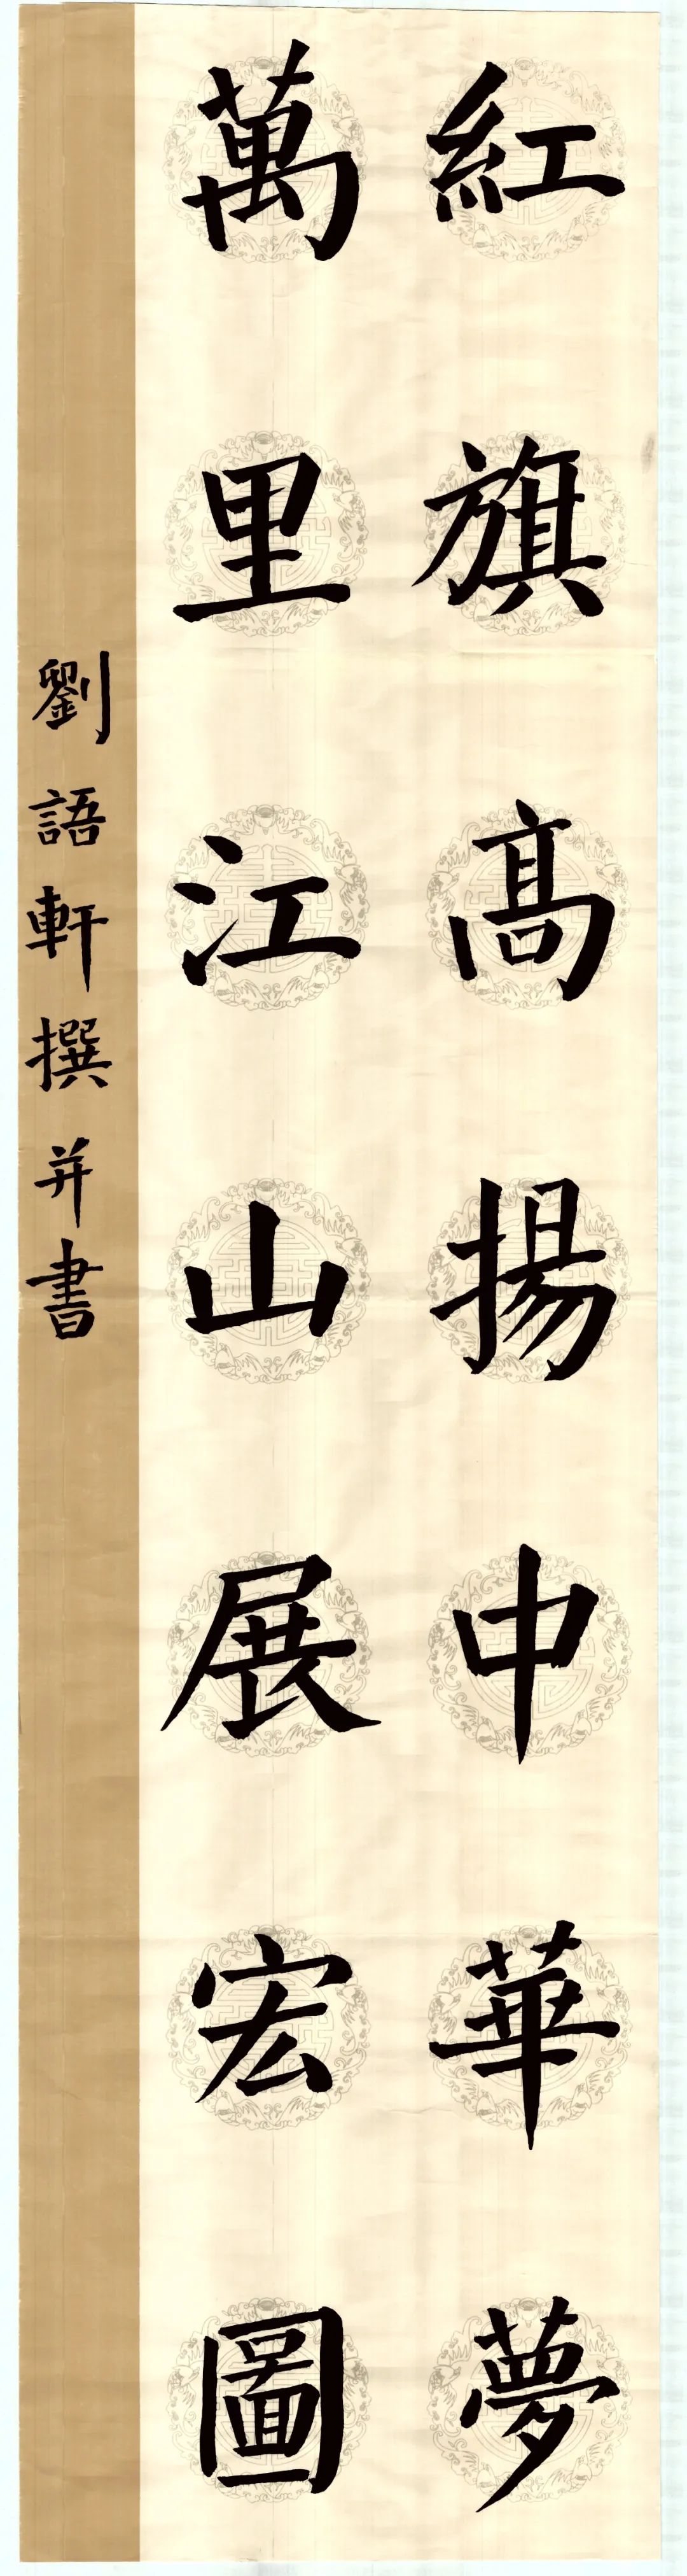 紅旗高揚中華夢
萬里江山展宏圖
劉語軒撰并書